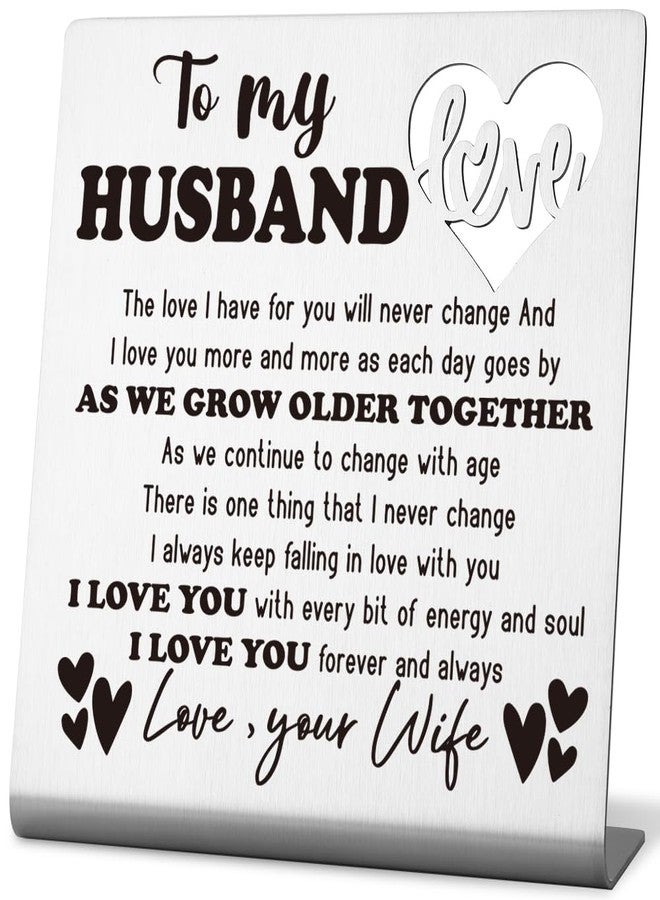 To my
love
HUSBAND
The love I have for you will never change And
I love you more and more as each day goes by
AS WE GROW OLDER TOGETHER
As we continue to change with age
There is one thing that I never change
I always keep falling in love with you
I LOVE YOU with every bit of energy and soul
I LOVE YOU forever and always
Love, your Wife